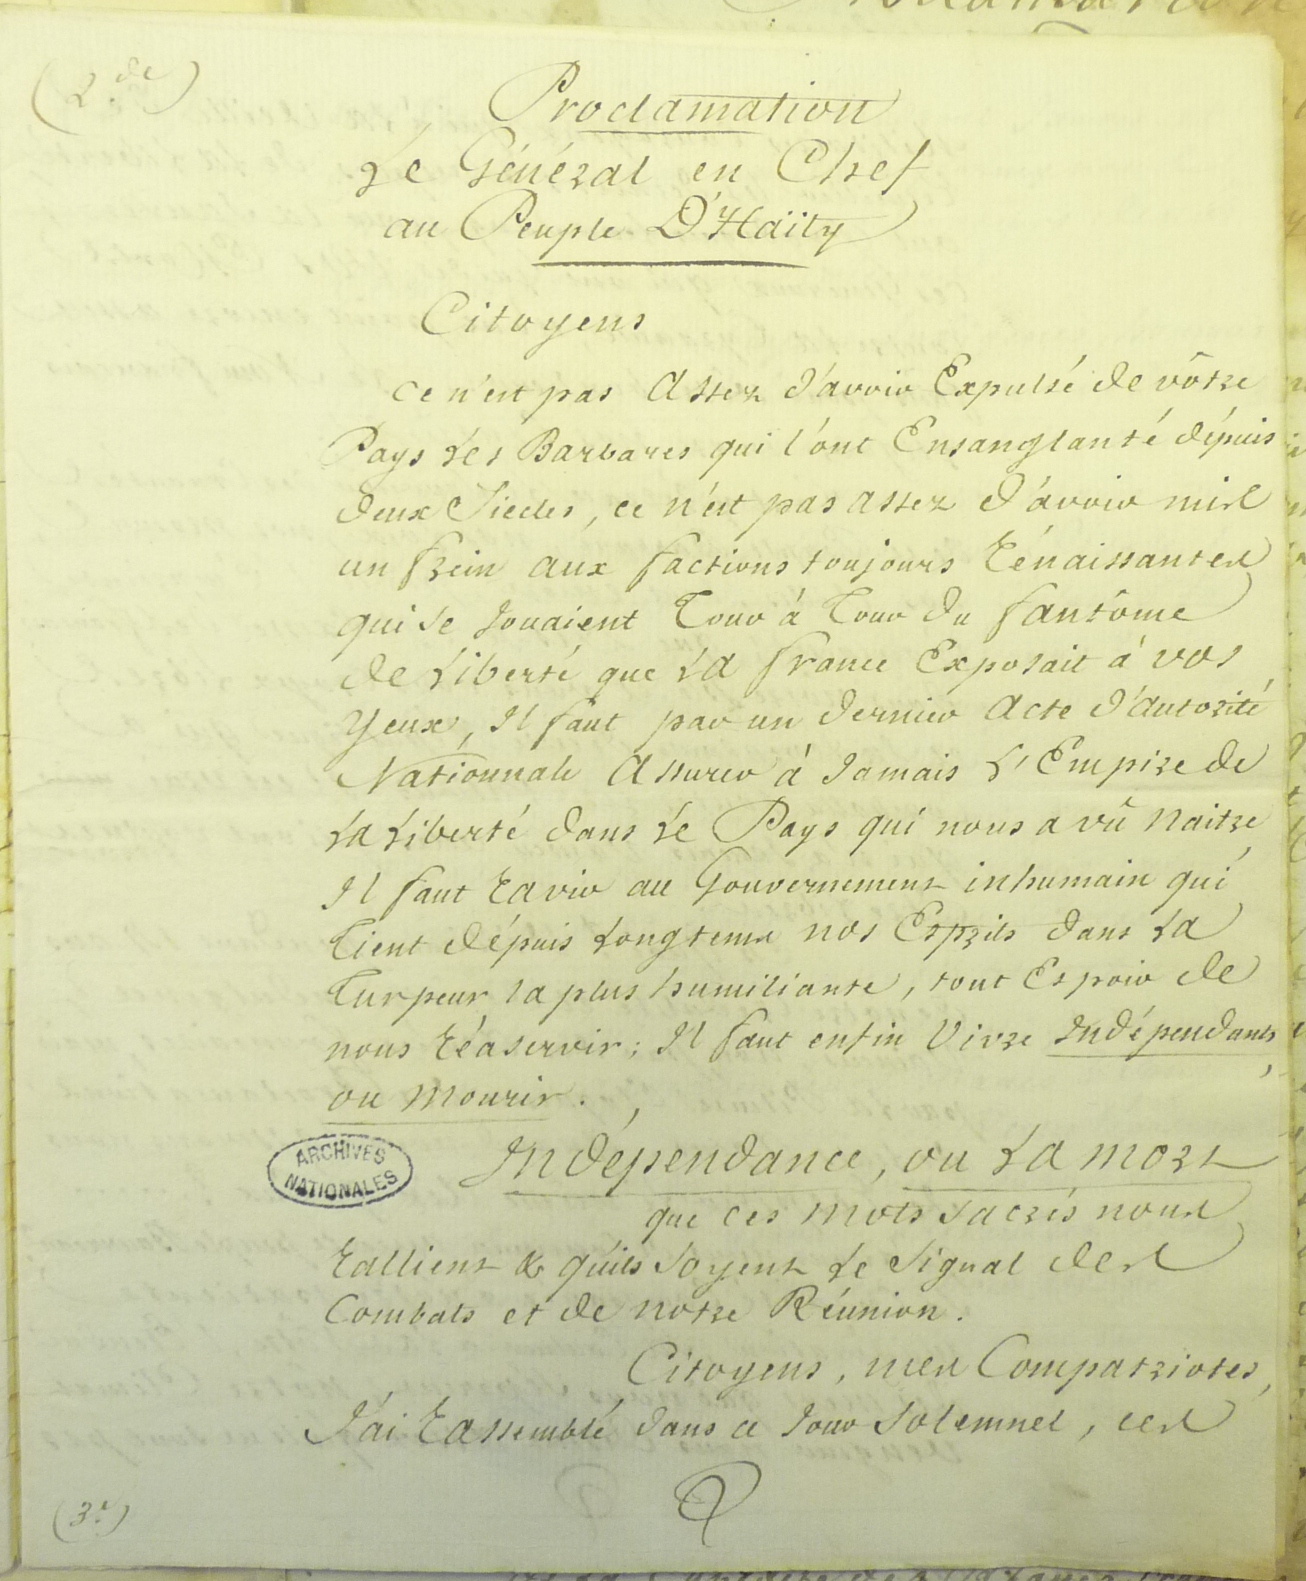 (2.de)
Proclamation
Le Général en Chef
au Peuple D'Haïty
Citoyens
Ce n'est pas Assez d'avoir Expulsé de vôtre
Pays Les Barbares qui l'ont Ensanglanté dépuis
deux Siecles, ce n'est pas assez d'avoir mis
un frein aux factions toujours Rénaissantes
qui se Jouaient Tour à Tour du fantôme
de Liberté que La france Exposait à vos
Yeux, Il faut par un dernier Acte d'autorité
Nationnale Assurer à Jamais L'Empire de
La Liberté dans Le Pays qui nous a vû Naitre
Il faut Ravir au Gouvernement inhumain qui
Tient dépuis Longtems nos Esprits dans La
Turpeur la plus humiliante, tout Espoir de
nous Réaservir; Il faut enfin Vivre Indépendants
ou Mourir.
Indépendance, ou La mort
que ces mots Sacrés nous
Rallient & qu'ils Soyent Le Signal des
Combats et de notre Réunion.
Citoyens, mes Compatriotes,
J'ai Rassemblé dans ce Jour Solemnel, ces
ARCHIVES
NATIONALES
(3.e)